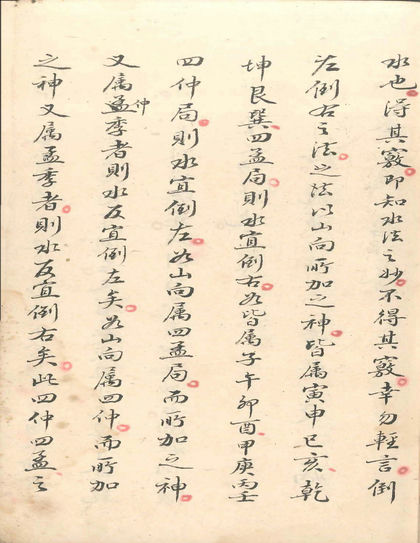 水也得其竅即知水法之妙不得其竅幸勿輕言倒
左倒右之法之法以山向所加之神皆属寅申巳亥乾
坤艮巽四孟局則水宜倒右如皆属子午卯酉甲庚丙壬
四仲局則水宜倒左如山向属四孟局而所加之神
又属孟仲季者則水反宜倒左矣如山向属四仲而所加
之神又属孟季者則水反宜倒右矣此四仲四孟之